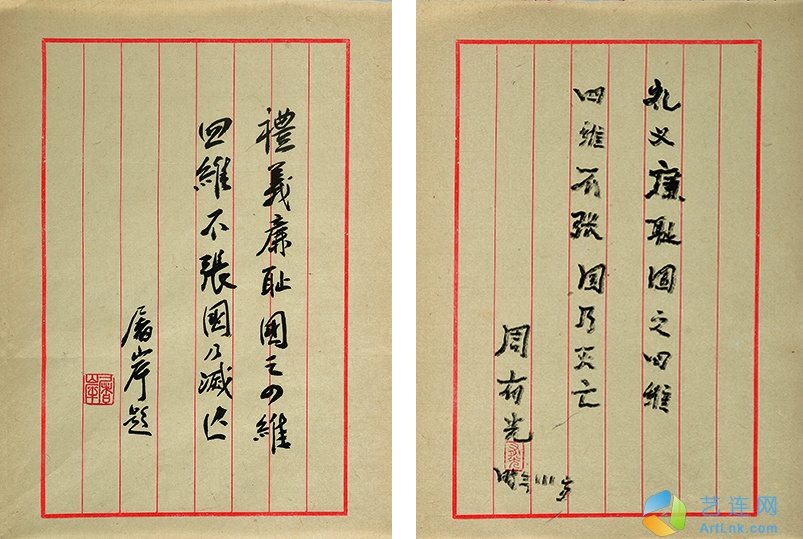 禮義廉耻國之四維
四維不張國乃滅亡
屠岸題
屠岸
礼义廉耻国之四维
四维不张国乃灭亡
周有光
时年111岁
艺连网
ArtLnk.com